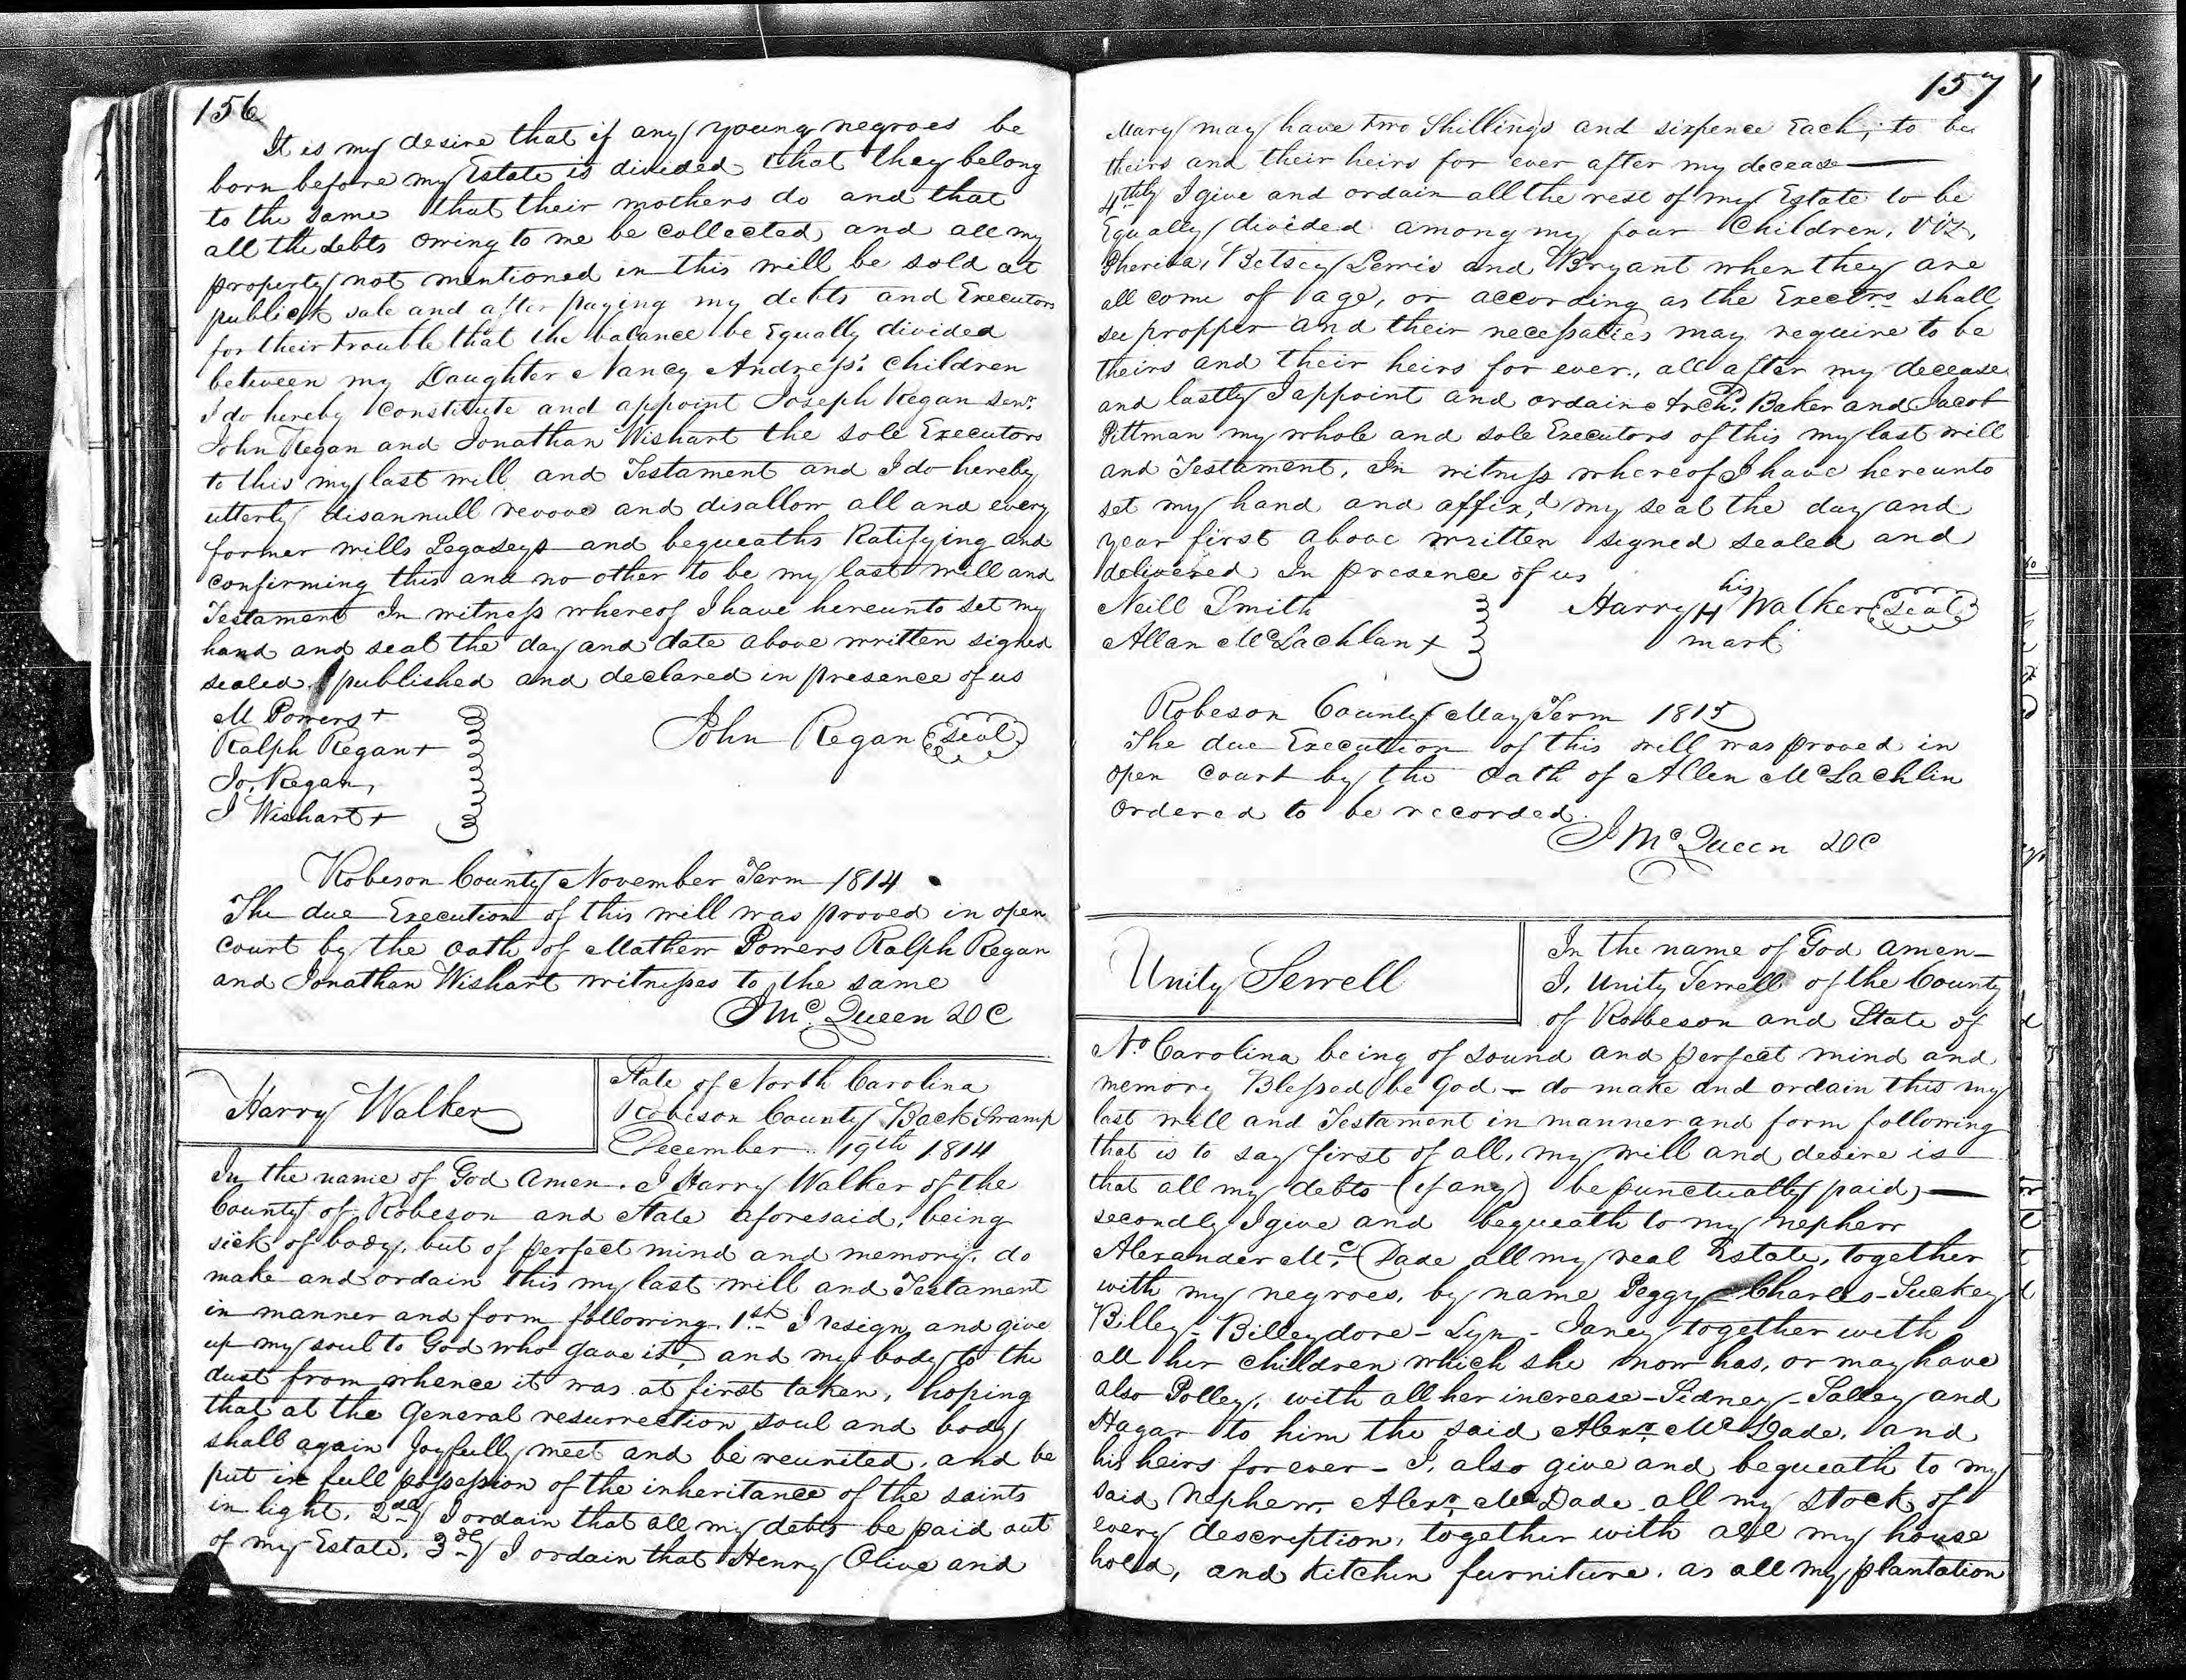 156
It is my desire that if any young negroes be
born before my Estate is divided that they belong
to the same that their mothers do and that
all the debts owing to me be collected, and all my
property not mentioned in this will be sold at
publick sale and after paying my debts and Executors
for their trouble that the balance be Equally divided
between my Daughter Nancy Andress's Children
I do hereby Constitute and appoint Joseph Regan senr.
John Regan and Jonathan Wishart the sole Executors
to this my last will and Testament and I do hereby
utterly disannull revove and disallow all and every
former wills Legaseys and bequeaths Ratifying and
confirming this and no other to be my last will and
Testament In witness whereof I have hereunto set my
hand and seal the day and date above written signed
sealed published and declared in presence of us
M Powers +
Ralph Regan + John Regan (seal)
Jo. Regan,
J Wishart +
Robeson County November Term 1814
The due Execution of this will was proved in open
court by the oath of Mathew Powers Ralph Regan
and Jonathan Wishart witnesses to the same
J Mc. Queen DC
Harry Walker
State of North Carolina
Robeson County Back Swamp
December 19th 1814
In the name of God Amen. I Harry Walker of the
County of Robeson and State aforesaid, being
sick of body, but of perfect mind and memory. do
make and ordain this my last will and Testament
in manner and form following. 1st I resign and give
up my soul to God who gave it, and my body to the
dust from whence it was at first taken, hoping
that at the General resurrection soul and body
shall again Joyfully meet and be reunited, and be
put in full possession of the inheritance of the saints
in light. 2ndly I ordain that all my debts be paid out
of my Estate, 3dly I ordain that Henry Olive and
157
Mary may have two Shillings and sixpence Each, to be
theirs and their heirs for ever after my decease
4thly I give and ordain all the rest of my Estate to be
Equally divided among my four Children, Viz,
Betsey Lewis and Bryant when they are
all come of age, or according as the Exectrs shall
see propper and their necessaties may require to be
theirs and their heirs for ever, all after my decease.
and lastly I appoint and ordain Archd. Baker and Jacob
Pittman my whole and sole Executors of this my last will
and Testament, In witness whereof I have hereunto
set my hand and affix,d my seal the day and
year first above written signed sealed and
delivered In presence of us
Neill Smith Harry his H mark Walker (seal)
Allan McLachlan +
Robeson County May Term 1815
The due Execution of this will was proved in
open court by the oath of Allen McLachlin
ordered to be recorded.
J Mc Queen DC
Unity Sewell
In the name of God amen—
I, Unity Sewell of the County
of Robeson and State of
No Carolina being of sound and perfect mind and
memory Blessed be God — do make and ordain this my
last will and Testament in manner and form following
that is to say first of all, my will and desire is
that all my debts (if any) be punctually paid, —
secondly I give and bequeath to my nephew
Alexander Mc. Dade all my real Estate, together
with my negroes, by name Peggy - Charles - Suckey
Billey - Billeydore - Lyn - Janey together with
all her children which she now has, or may have
also Polley, with all her increase - Sidney - Salley and
Hagar to him the said Alexr. Mc Dade, and
his heirs forever - I, also give and bequeath to my
said Nephew, Alexr. Mc Dade all my stock of
every description, together with all my house
hold, and Kitchin furniture. as all my plantation